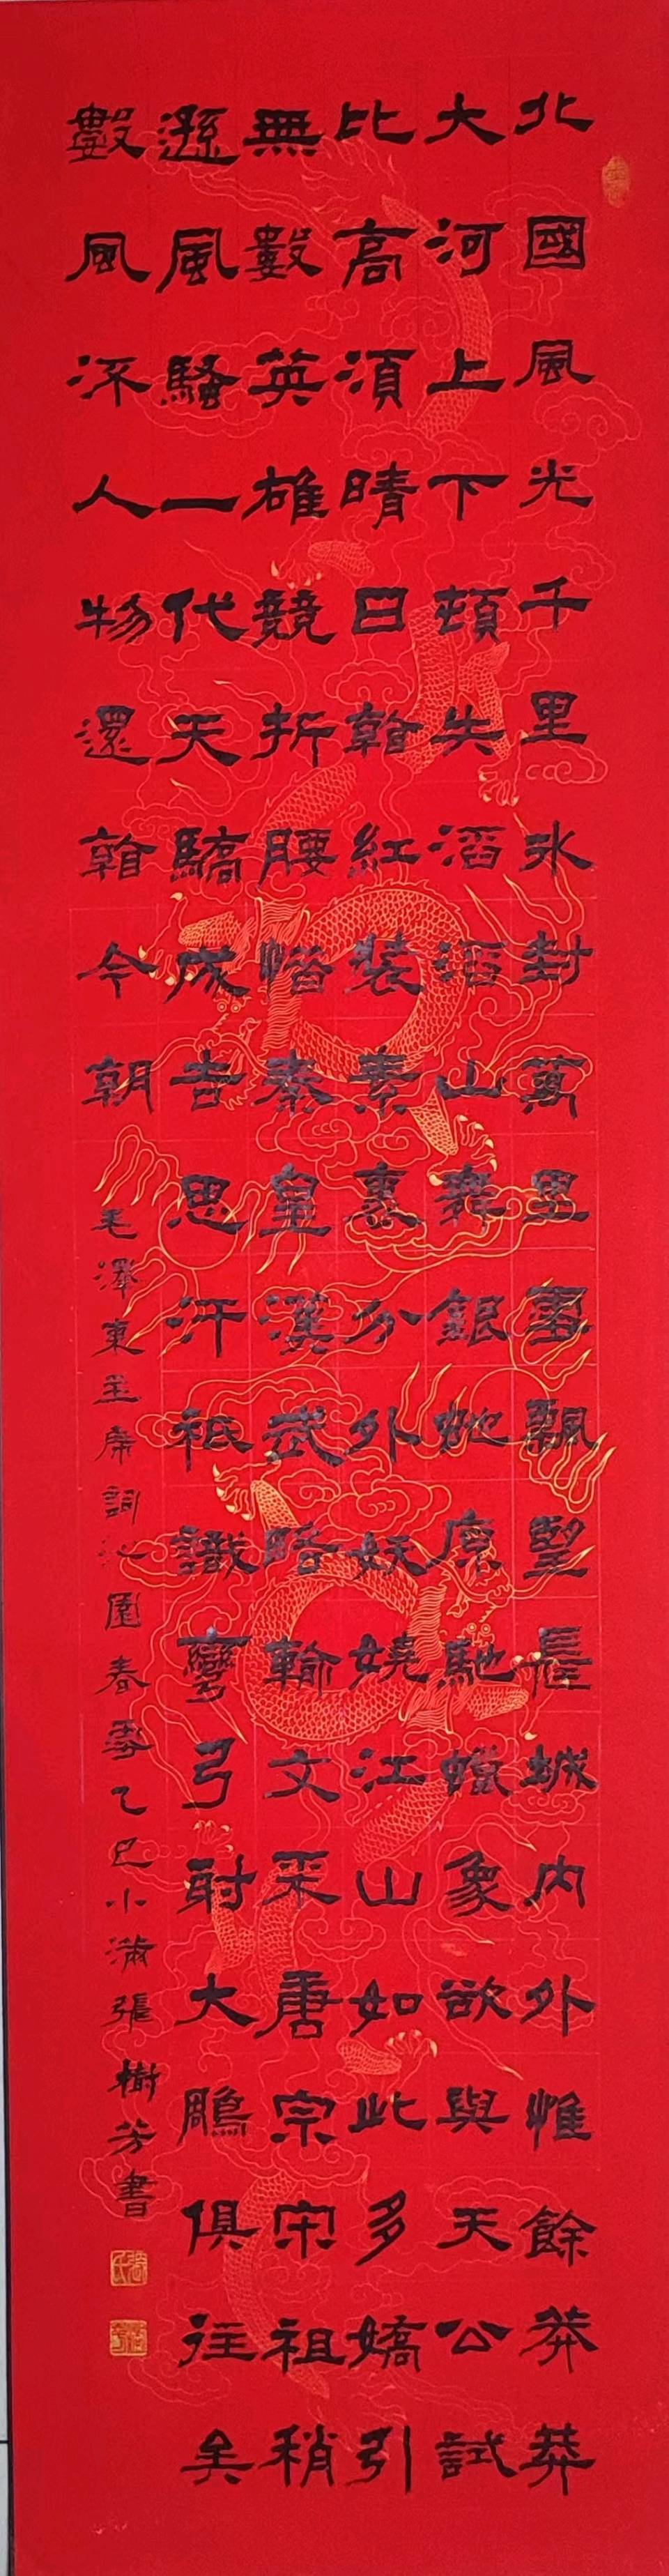 北國風光千里冰封萬里雪飄望長城內外惟餘莽莽
大河上下頓失滔滔山舞銀蛇原馳蠟象欲與天公試
比高須晴日看紅裝素裹分外妖嬈江山如此多嬌引
無數英雄競折腰惜秦皇漢武略輸文采唐宗宋祖稍
遜風騷一代天驕成吉思汗祇識彎弓射大鵰俱往矣
數風流人物還看今朝
毛澤東主席詞沁園春雪乙巳小滿張樹芳書